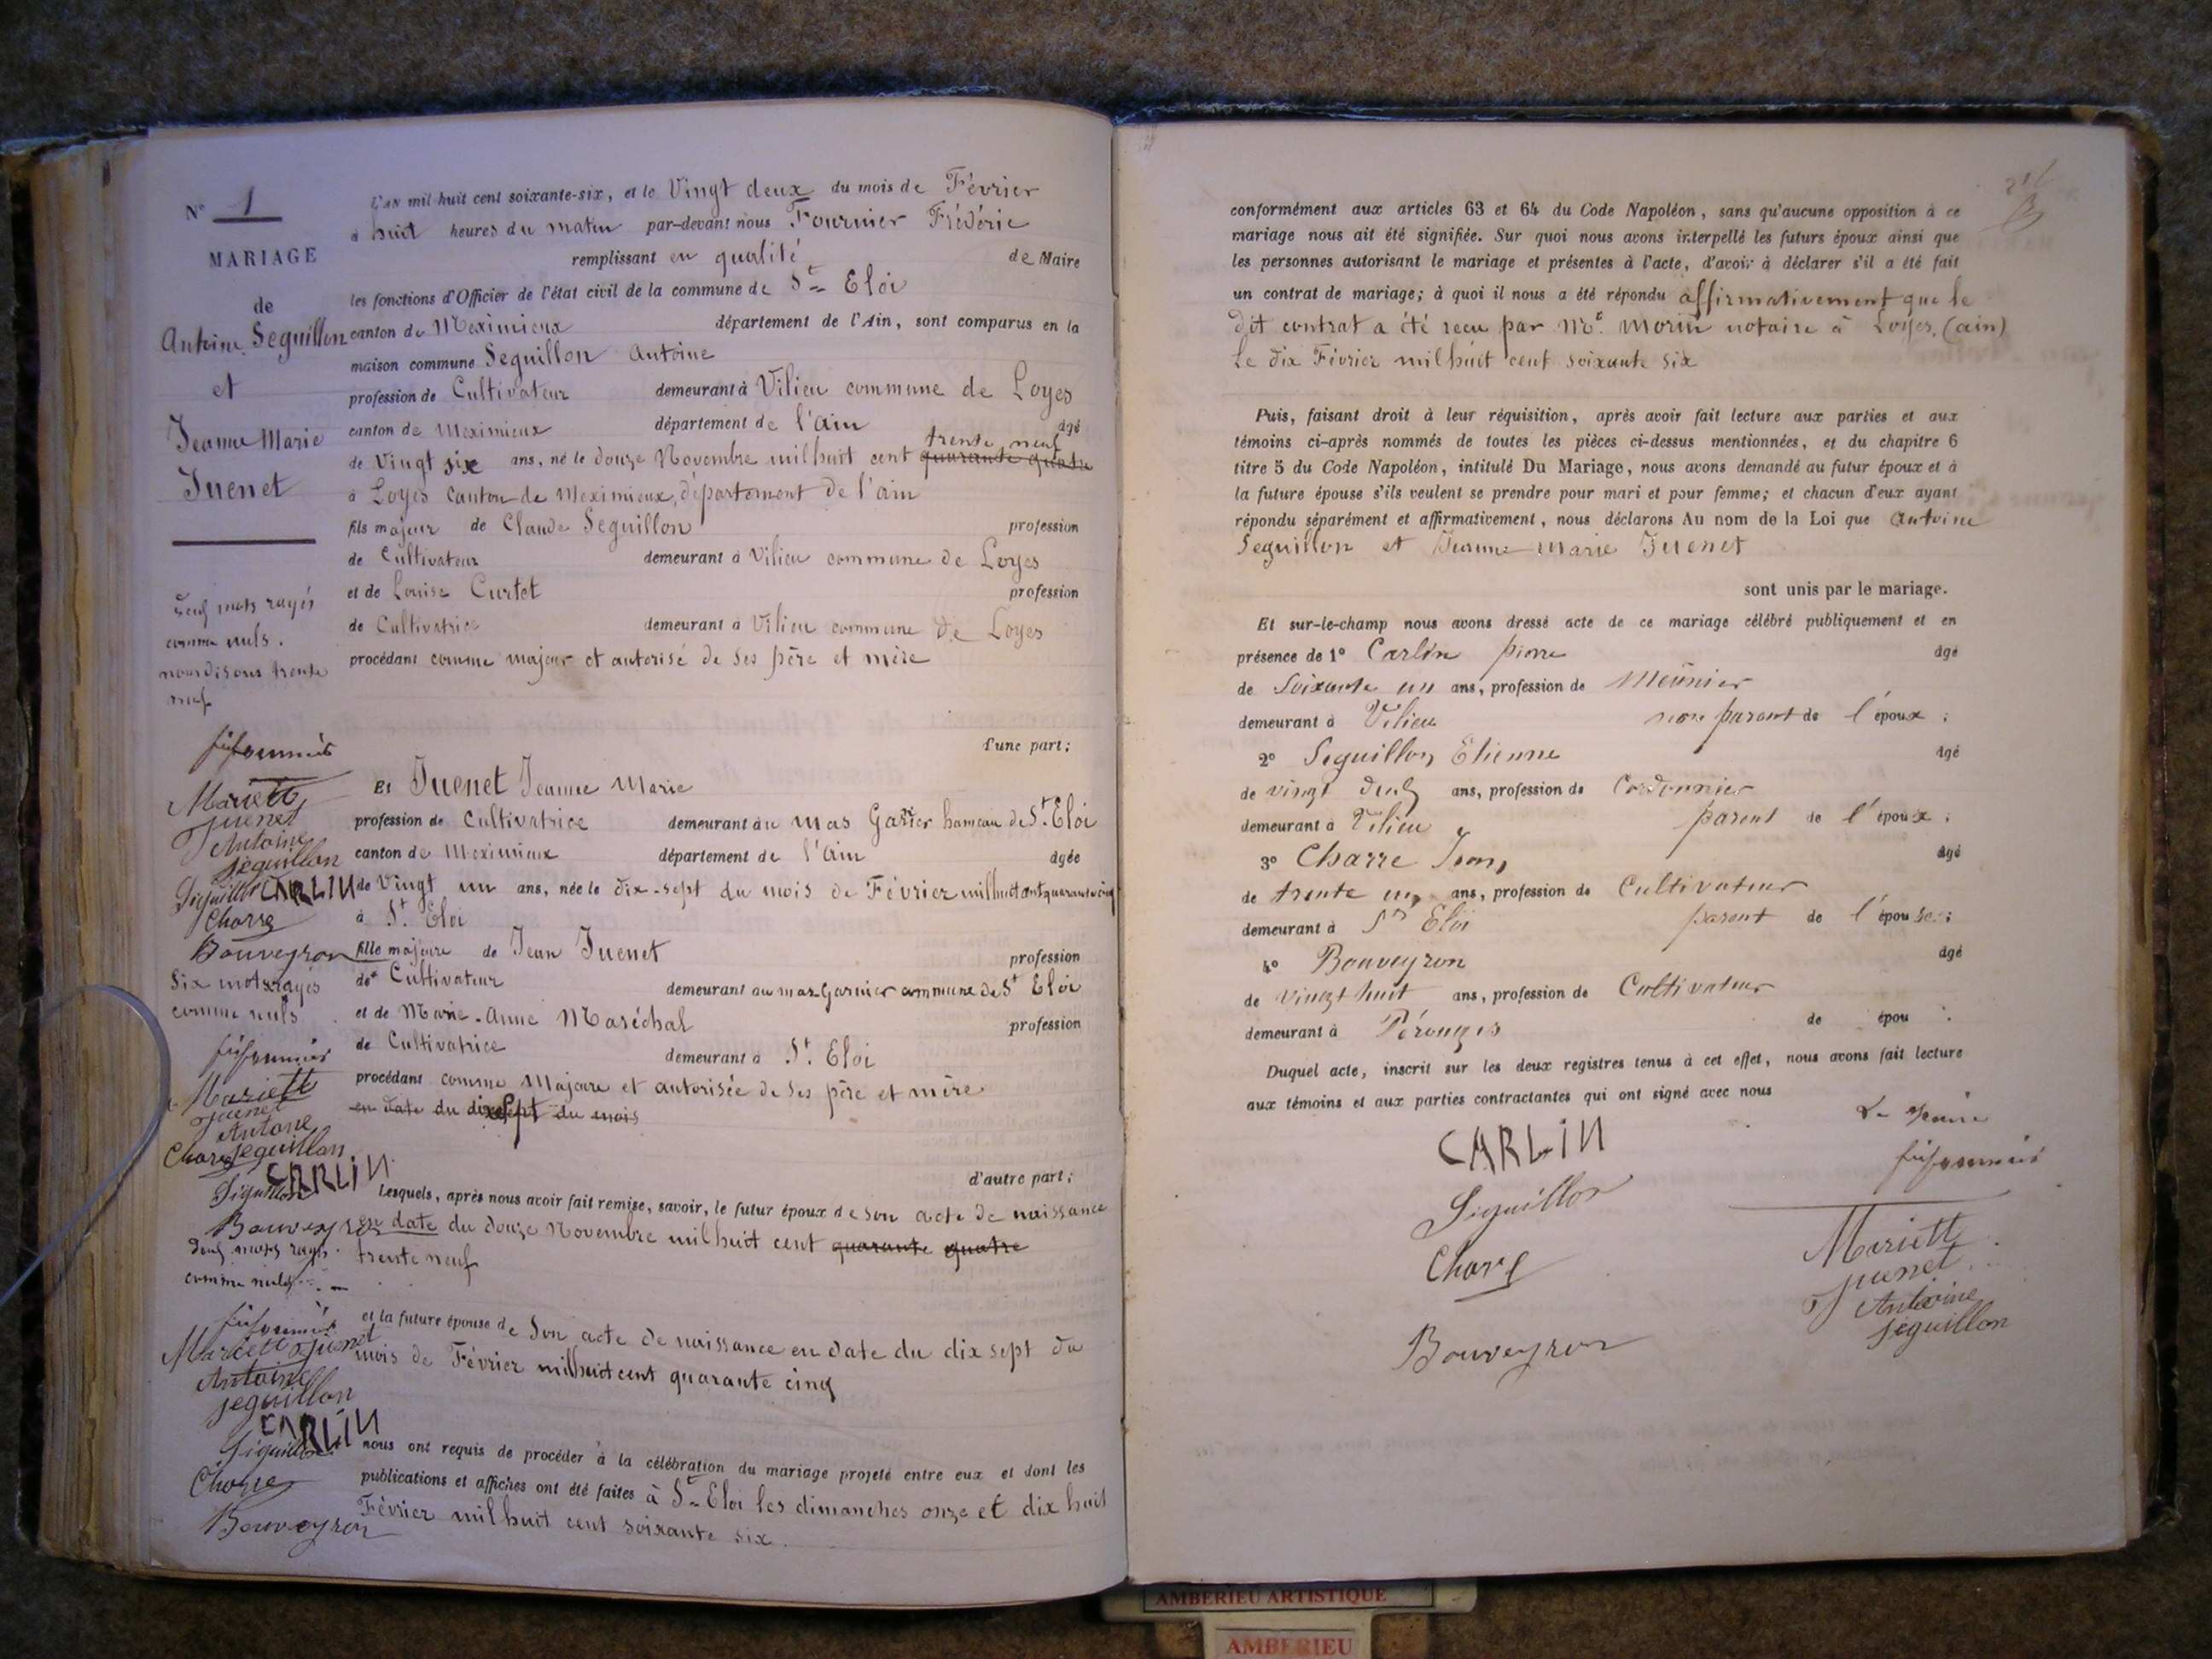 N° 1
MARIAGE
de
Antoine Seguillon
et
Jeanne Marie
Juenet
L'AN mil huit cent soixante-six, et le Vingt deux du mois de Février
à huit heures du matin par-devant nous Fournier Frédéric
remplissant en qualité de Maire
les fonctions d'Officier de l'état civil de la commune de St Eloi
canton de Meximieux département de l'Ain, sont comparus en la
maison commune Seguillon Antoine
profession de Cultivateur demeurant à Vilieu commune de Loyes
canton de Meximieux département de l'ain âgé
trente neuf
de Vingt six ans, né le douze Novembre mil huit cent quarante quatre
à Loyes Canton de Meximieux, département de l'ain
fils majeur de Claude Seguillon profession
de Cultivateur demeurant à Vilieu commune de Loyes
et de Louise Curtet profession
de Cultivatrice demeurant à Vilieu commune de Loyes
procédant comme majeur et autorisé de ses père et mère
d'une part;
mots rayés
comme nuls.
nous disons trente
neuf
Mariett
Juenet
Antoine
seguillon
Siguillon CARLIN
Charre
Bouveyron
Et Juenet Jeanne Marie
profession de Cultivatrice demeurant au mas Garier hameau de St. Eloi
canton de Meximieux département de l'ain âgée
de Vingt un ans, née le dix-sept du mois de Février mil huit cent quarante cinq
à St. Eloi
fille majeure de Jean Juenet profession
de Cultivateur demeurant au mas Garnier commune de St Eloi
et de Marie-Anne Maréchal profession
de Cultivatrice demeurant à St. Eloi
procédant comme Majeure et autorisée de ses père et mère
en date du dix sept du mois
d'autre part;
Six mots rayés
comme nuls
Mariett
Juenet
Antoine
Charre seguillon
CARLIN
Siguillon
Bouveyron
Lesquels, après nous avoir fait remise, savoir, le futur époux de son acte de naissance
en date du douze Novembre mil huit cent quarante quatre
trente neuf
mots rayés
comme nuls
Mariett Juenet
Antoine
seguillon
CARLIN
Siguillon
Charre
Bouveyron
et la future épouse de Son acte de naissance en date du dix sept du
mois de Février mil huit cent quarante cinq
nous ont requis de procéder à la célébration du mariage projeté entre eux et dont les
publications et affiches ont été faites à St Eloi les dimanches onze et dix huit
Février mil huit cent soixante six.
conformément aux articles 63 et 64 du Code Napoléon, sans qu'aucune opposition à ce
mariage nous ait été signifiée. Sur quoi nous avons interpellé les futurs époux ainsi que
les personnes autorisant le mariage et présentes à l'acte, d'avoir à déclarer s'il a été fait
un contrat de mariage; à quoi il nous a été répondu affirmativement que le
dit contrat a été recu par Me. Morin notaire à Loyes, (ain)
le dix Février mil huit cent soixante six
Puis, faisant droit à leur réquisition, après avoir fait lecture aux parties et aux
témoins ci-après nommés de toutes les pièces ci-dessus mentionnées, et du chapitre 6
titre 5 du Code Napoléon, intitulé Du Mariage, nous avons demandé au futur époux et à
la future épouse s'ils veulent se prendre pour mari et pour femme; et chacun d'eux ayant
répondu séparément et affirmativement, nous déclarons Au nom de la Loi que Antoine
Seguillon et Jeanne Marie Juenet
sont unis par le mariage.
Et sur-le-champ nous avons dressé acte de ce mariage célébré publiquement et en
présence de 1° Carlin pierre âgé
de Soixante un ans, profession de Meunier
demeurant à Vilieu non parent de l'époux;
2° Seguillon Etienne âgé
de vingt deux ans, profession de Cordonnier
demeurant à Vilieu parent de l'époux;
3° Charre Jean, âgé
de trente un, ans, profession de Cultivateur
demeurant à St Eloi parent de l'épouse;
4° Bouveyron âgé
de Vingt huit ans, profession de Cultivateur
demeurant à Pérouges de épou .
Duquel acte, inscrit sur les deux registres tenus à cet effet, nous avons fait lecture
aux témoins et aux parties contractantes qui ont signé avec nous
Le Maire
CARLIN
Siguillon
Charre
Bouveyron
Mariett
Juenet
Antoine
seguillon
AMBERIEU ARTISTIQUE
AMBERIEU